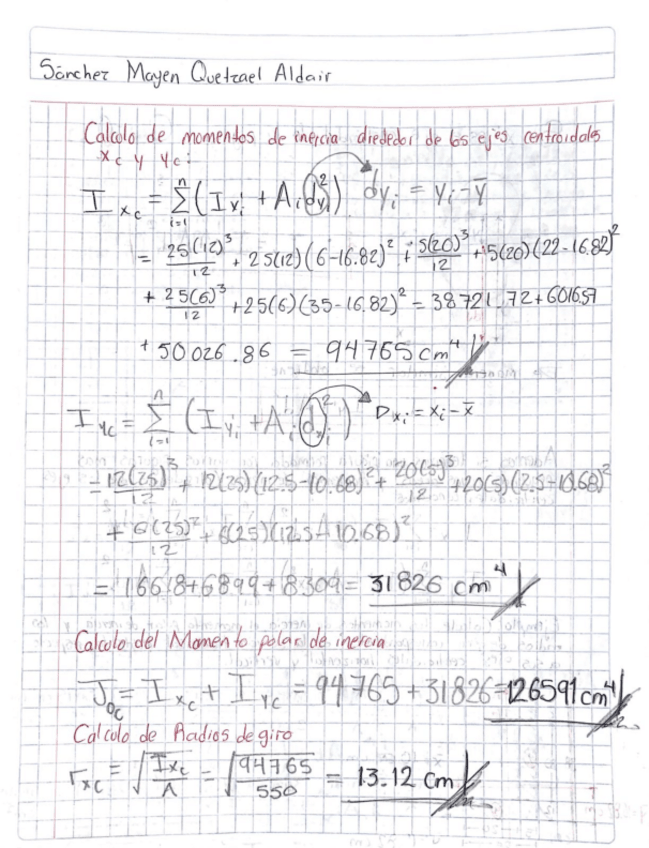 Sánchez Mayen Quetzael Aldair
Calculo de momentos de inercia alrededor de los ejes centroidales
xc y yc:
I xc = Σ i=1 n (I xi' + Ai dyi²) dyi = yi - ȳ
= 25(12)³/12 + 25(12)(6-16.82)² + 5(20)³/12 + 5(20)(22-16.82)²
+ 25(6)³/12 + 25(6)(35-16.82)² = 38721.72 + 6016.57
+ 50026.86 = 94765 cm⁴
I yc = Σ i=1 n (I yi' + Ai dxi²) Dxi = xi - x̄
= 12(25)³/12 + 12(25)(12.5-10.68)² + 20(5)³/12 + 20(5)(2.5-10.68)²
+ 6(25)²/12 + 6(25)(12.5-10.68)²
= 16618 + 6899 + 8309 = 31826 cm⁴
Calculo del Momento polar de inercia
J0c = I xc + I yc = 94765 + 31826 = 126591 cm⁴
Calculo de Radios de giro
rxc = √(Ixc/A) = √(94765/550) = 13.12 cm